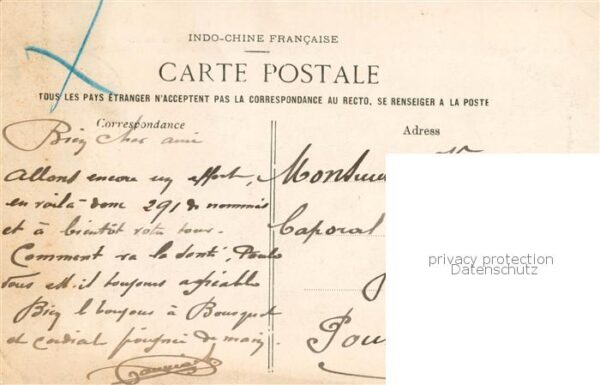 INDO-CHINE FRANÇAISE
CARTE POSTALE
TOUS LES PAYS ÉTRANGER N'ACCEPTENT PAS LA CORRESPONDANCE AU RECTO, SE RENSEIGER A LA POSTE
Correspondance
Adress
Bien cher ami
Allons encore un effort,
en voilà donc 291 de nommés
et à bientôt votre tour.
Comment va la santé,
vous est-il toujours agréable
Bien le bonjour à Bousquet
et cordial poignée de main
Monsieur
Caporal
privacy protection
Datenschutz